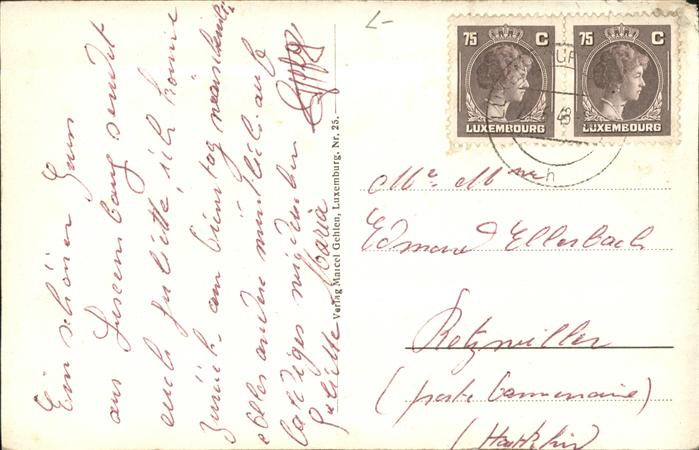 Ein schöner Gruss
aus Luxemburg sendet
euch Juliette, ich komme
zurück am Dienstag
alles andere mündlich auf
baldiges wiedersehen
Juliette Maria
Verlag Marcel Gehlen, Luxemburg. Nr. 25.
75 C
LUXEMBOURG
75 C
LUXEMBOURG
Mr. Mme
Edmond Ellerbach
Retzwiller
(poste Dannemarie)
(Haut Rhin